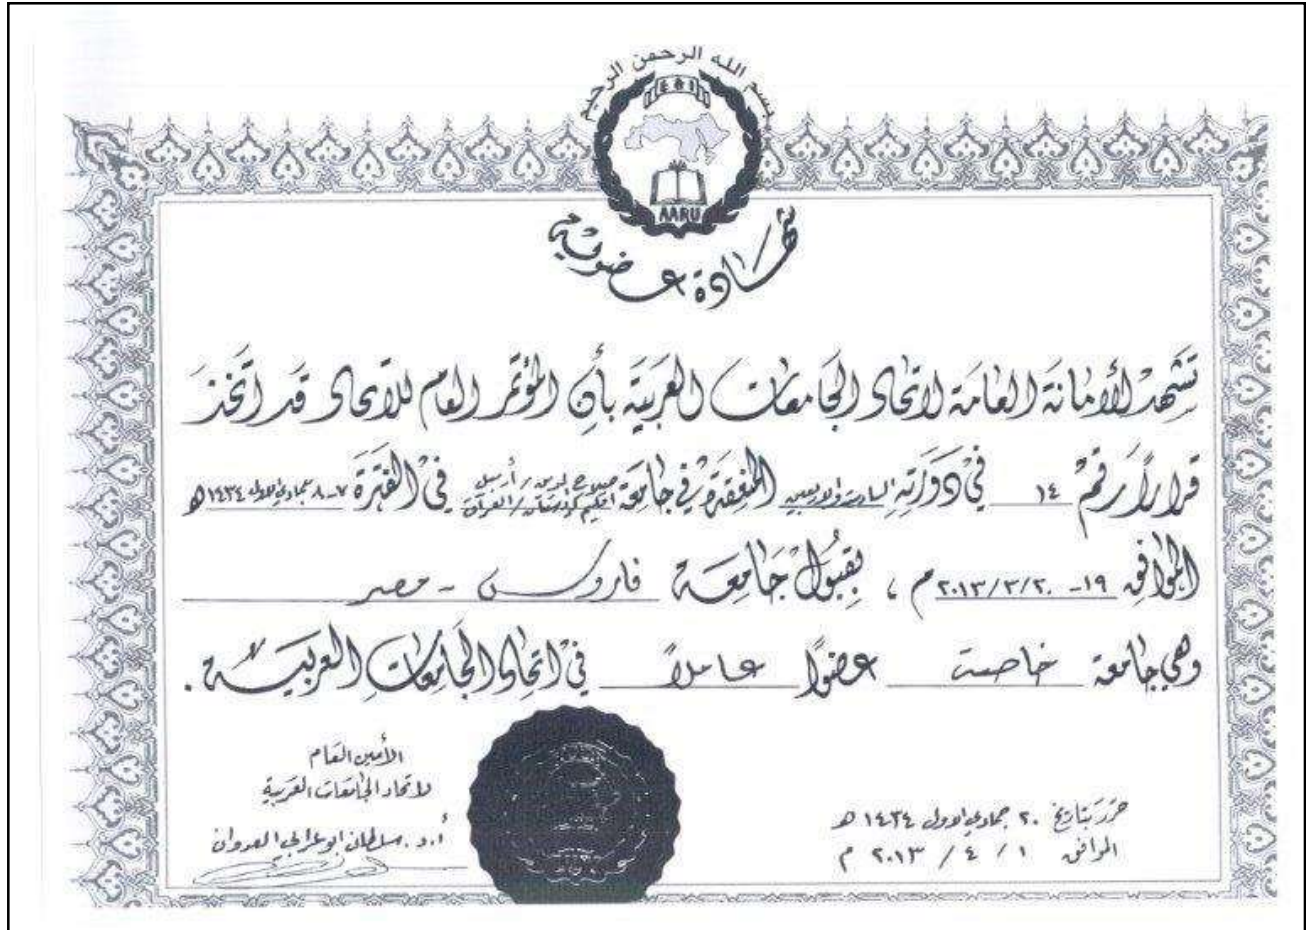 بسم الله الرحمن الرحيم
AARU
شهادة عضوية
تشهد الأمانة العامة لاتحاد الجامعات العربية بأن المؤتمر العام للاتحاد قد اتخذ
قراراً رقم ١٤ في دورته السادسة والاربعين المنعقدة في جامعة صلاح الدين / أربيل
اقليم كردستان / العراق في الفترة ٧-٨ جمادي الاولى ١٤٣٤ هـ
الموافق ١٩-٢٠١٣/٣/٢٠ م ، بقبول جامعة فاروس - مصر
وهي جامعة خاصة عضوًا عاملاً في اتحاد الجامعات العربية .
الأمين العام
لاتحاد الجامعات العربية
أ.د. سلطان ابو عرابي العدوان
حرر بتاريخ ٢٠ جمادي الاول ١٤٣٤ هـ
الموافق ١ / ٤ / ٢٠١٣ م